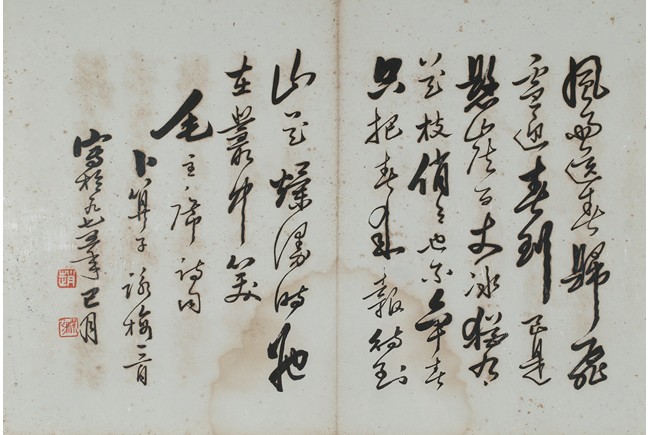 風雨送春歸飛
雪迎春到已是
懸崖百丈冰猶有
花枝俏々也不爭春
只把春來報待到
山花爛漫時她
在叢中笑
毛主席詩詞
卜算子詠梅一首
寫於一九七五年巳月